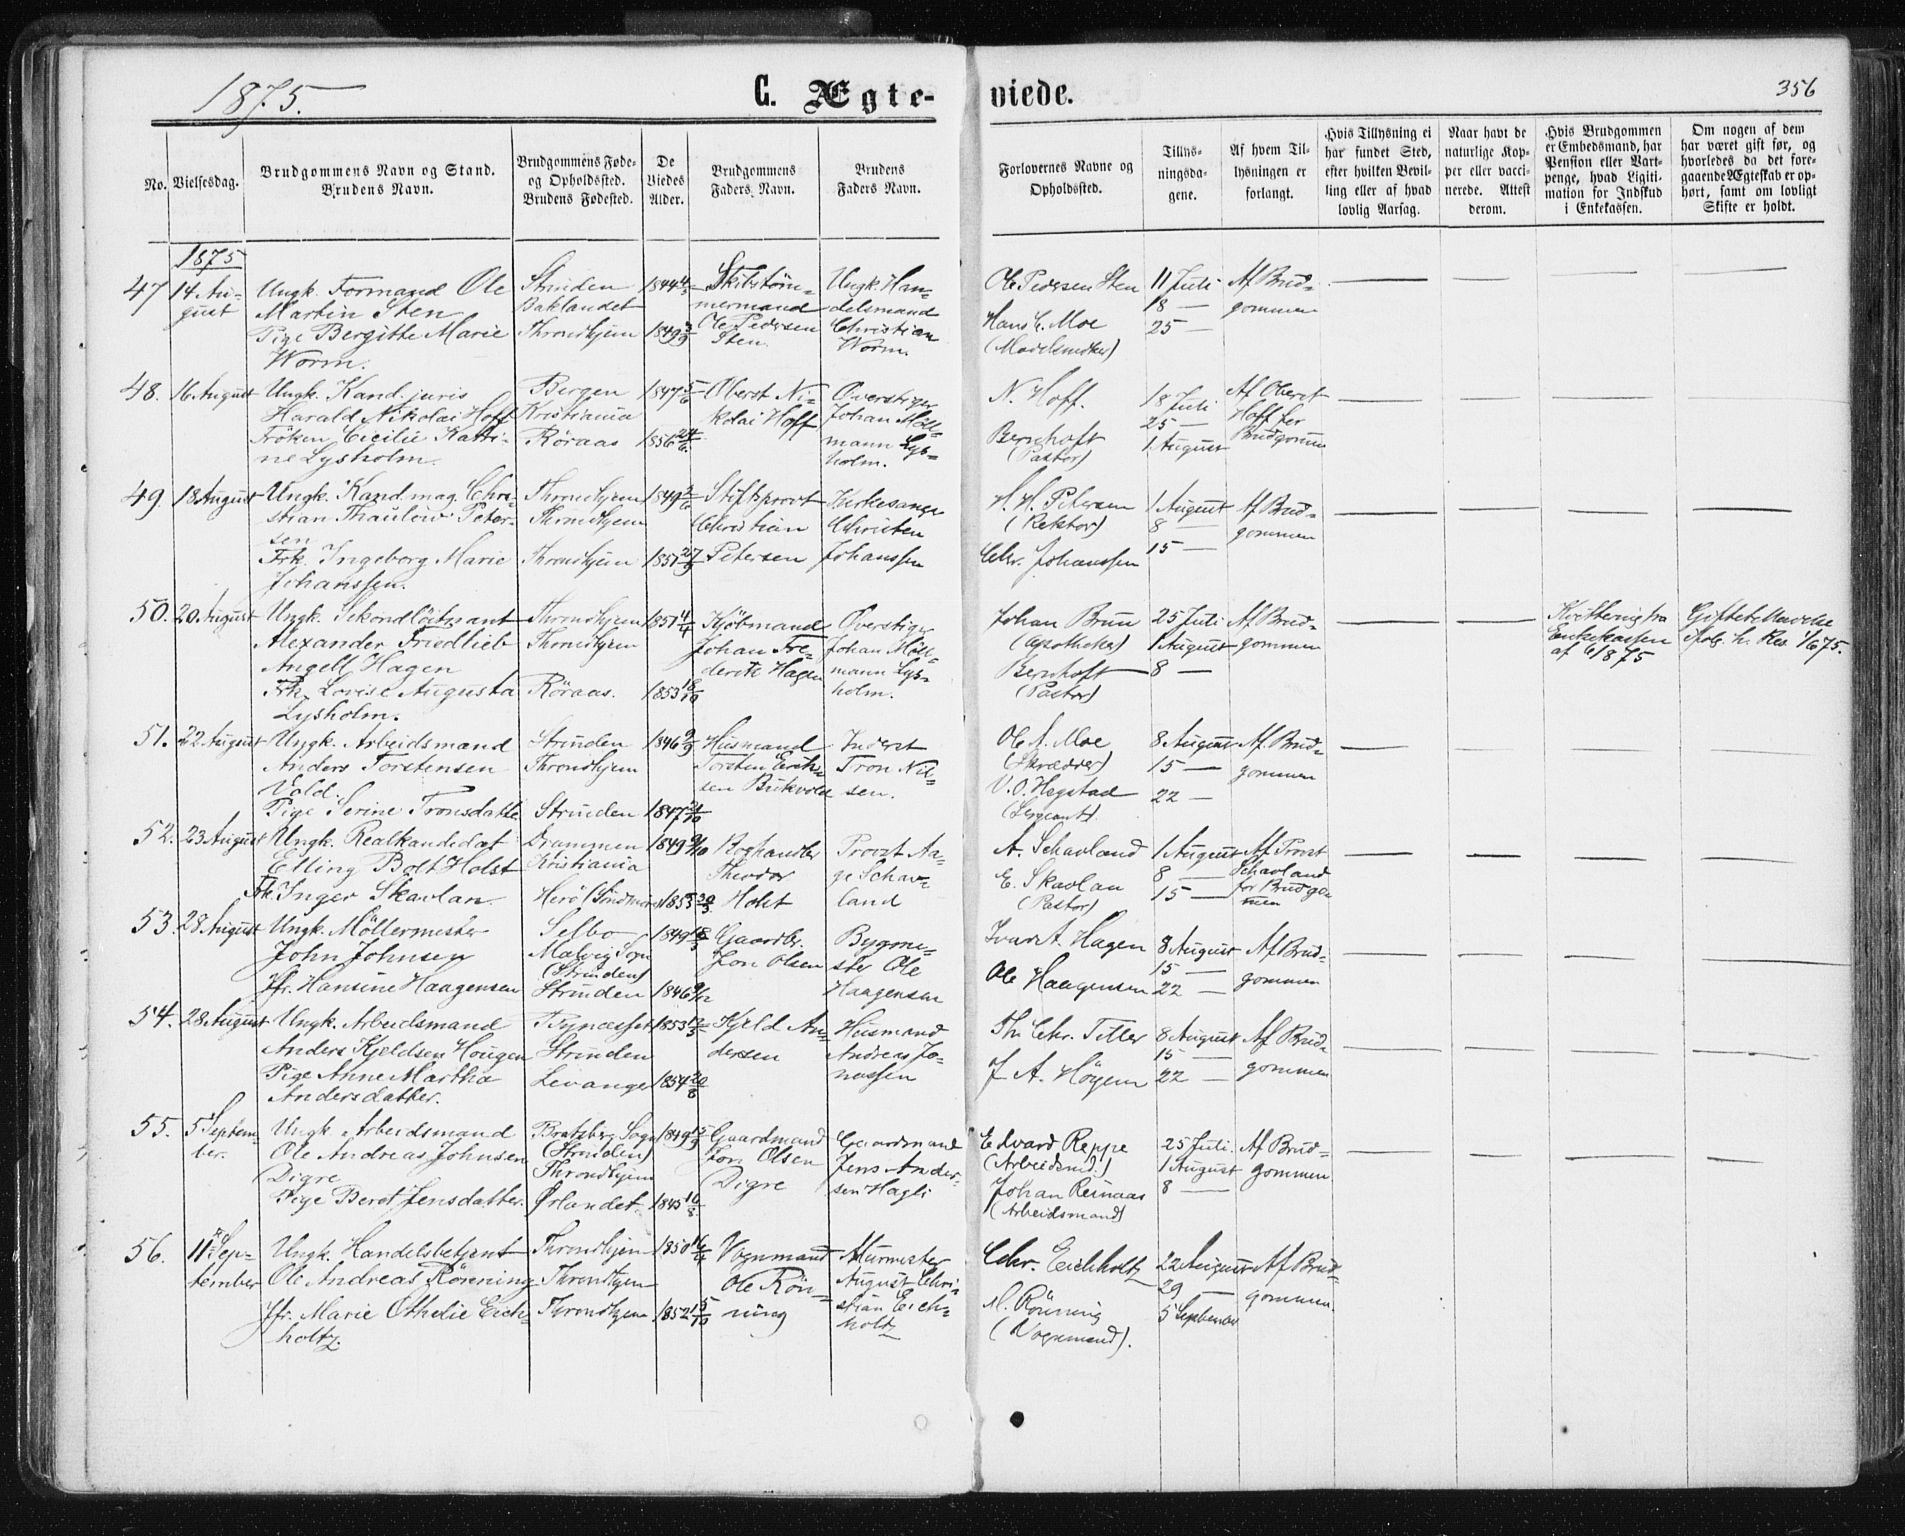 1875.
C. Ægteviede.
356
No.
Vielsesdag.
Brudgommens Navn og Stand.
Brudens Navn.
Brudgommens Føde-
og Opholdssted.
Brudens Fødested.
De
Viedes
Alder.
Brudgommens
Faders Navn.
Brudens
Faders Navn.
Forlovernes Navne og
Opholdssted.
Tillys-
ningsda-
gene.
Af hvem Til-
lysningen er
forlangt.
Hvis Tillysning ei
har fundet Sted,
efter hvilken Bevil-
ling eller af hvad
lovlig Aarsag.
Naar havt de
naturlige Kop-
per eller vacci-
nerede. Attest
derom.
Hvis Brudgommen
er Embedsmand, har
Pension eller Vart-
penge, hvad Ligiti-
mation for Indskud
i Enkekassen.
Om nogen af dem
har været gift før, og
hvorledes da det fore-
gaaende Ægteskab er op-
hørt, samt om lovligt
Skifte er holdt.
1875
47
14 Au-
gust
Ungk. Formand Ole
Martin Sten
Pige Bergitte Marie
Worm.
Strinden
Baklandet
Throndhjem
1844
1849 3/9
Skibstöm-
mermand
Ole Pedersen
Sten.
Ungk. Han-
delsmand
Christian
Worm.
Ole Pedersen Sten
Hans C. Moe
(Modelsnedker)
11 Juli
18 —
25 —
Af Brud-
gommen
48.
16 August
Ungk. Kand. juris
Harald Nikolai Hoff
Fröken Cicilie Katri-
ne Lysholm.
Bergen
Kristiania
Röraas
1847 5/6
1856 24/6
Oberst Ni-
kolai Hoff
Overstiger
Johan Möll-
mann Lys-
holm.
N. Hoff.
Bernhoft
(Pastor)
18 Juli
25 —
1 August
Af Oberst
Hoff for
Brudgomm
49.
18 August
Ungk. Kand. mag. Chri-
stian Thaulow Peter-
sen
Frk. Ingeborg Marie
Johanssen.
Throndhjem
Throndhjem
Throndhjem
1849 2/6
1851 27/9
Stiftsprovst
Christian
Petersen
Kirkesanger
Christen
Johanssen
H. H. Petersen
(Rektor)
Chr. Johanssen
1 August
8 —
15 —
Af Brud-
gommen
50.
20. August
Ungk. Sekondlöitnant
Alexander Friedlieb
Angell Hagen
Frk. Lovise Augusta
Lysholm.
Throndhjem
Throndhjem
Röraas.
1851 11/4
1853 18/10
Kjöbmand
Johan Fre-
derik Hagen
Overstiger
Johan Möll-
mann Lys-
holm.
Johan Brun
(Apotheker)
Bernhoft
(Pastor)
25 Juli
1 August
8 —
Af Brud-
gommen
Kvittering fra
Enkekassen
af 6/8 75
51.
22 August
Ungk. Arbeidsmand
Anders Torstensen
Vold.
Pige Serine Tronsdatter
Strinden
Throndhjem
Strinden
1846 9/9
1847 21/10
Husmand
Torsten Erik-
sen Bukvold
Inderst
Tron Nil-
sen.
Ole A. Moe
(Skrædder)
V. O. Hegstad
(Sergeant)
8 August
15 —
22 —
Af Brud-
gommen
52.
23 August
Ungk. Realkandidat
Elling Bolt Holst
Frk. Inger Skavlan
Drammen
Kristiania
Herö (Söndmöre)
1849 9/10
1853
Boghandler
Theodor
Holst
Provst Aa-
ge Schav-
land
A. Schavland
E. Skavlan
(Pastor)
1 August
8 —
15 —
Af Provst
Schavland
for Brudgom
men
53.
28 August
Ungk. Möllermester
John Johnsen
Jfr. Hansine Haagensen
Selbo
Malvig Sogn
(Strinden)
Strinden
1849 18/3
1846 9/12
Gaardbr.
Jon Olsen
Bygme-
ster Ole
Haagensen
Ivar A. Hagen
Ole Haagensen
8 August
15 —
22 —
Af Brud-
gommen
54.
28 August
Ungk. Arbeidsmand
Anders Kjeldsen Hougen
Pige Anne Martha
Andersdatter.
Bynæsset
Strinden
Levanger
1853 12/3
1854 20/8
Kjeld An-
dersen
Husmand
Andreas Jo-
nassen
Th. Chr. Teller
J. A. Höyem
8 August
15 —
22 —
Af Brud-
gommen
55.
5 Septem-
ber.
Ungk. Arbeidsmand
Ole Andreas Johnsen
Digre
Pige Beret Jensdatter.
Bratsberg Sogn
(Strinden)
Throndhjem
Ørlandet.
1849 15/9
1845 16/8
Gaardmand
Jon Olsen
Digre
Gaardmand
Jens Ander-
sen Hagli
Edvard Reppe
(Arbeidsmd.)
Johan Reinaas
(Arbeidsmand)
25 Juli.
1 August
8 —
Af Brud-
gommen
56.
11 Sep-
tember
Ungk. Handelsbetjent
Ole Andreas Rönning
Jfr. Marie Othelie Eich-
holtz.
Throndhjem
Throndhjem
Throndhjem
1850 16/4
1852 15/10
Vognmand
Ole Rön-
ning
Murmester
August Chri-
stian Eich-
holtz
Chr. Eichholtz
M. Rönning
(Vognmand).
22 August
29 —
5 September
Af Brud-
gommen.